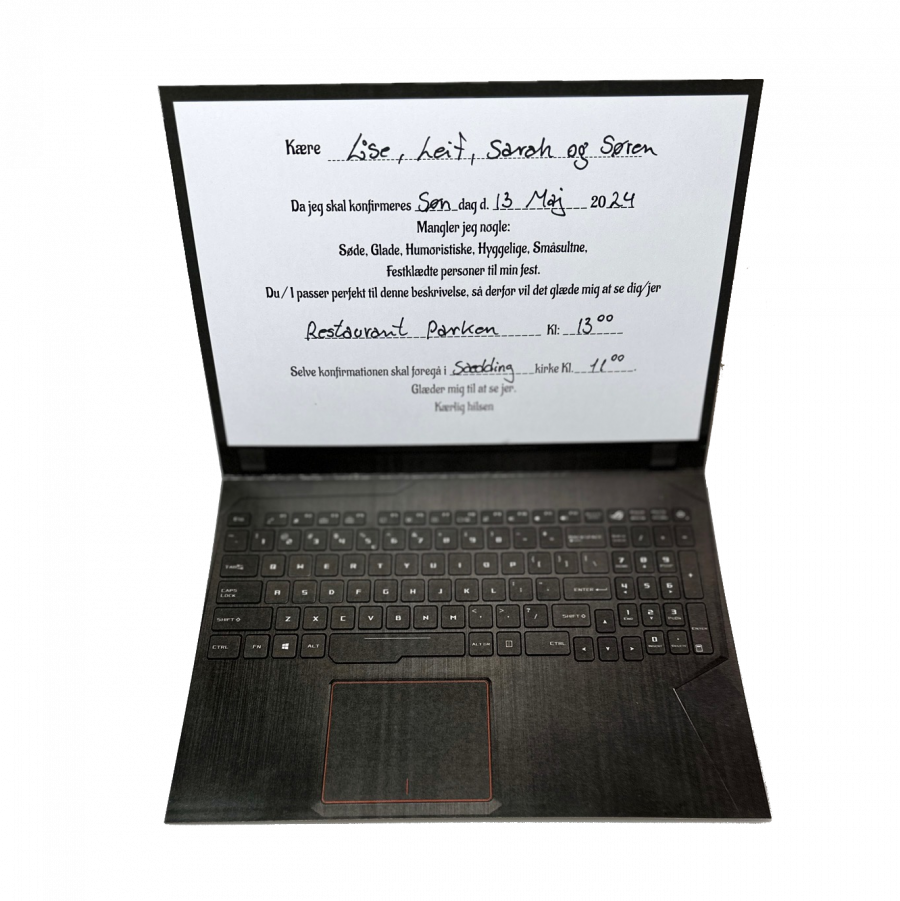 Kære Lise, Leif, Sarah og Søren
Da jeg skal konfirmeres Søn dag d. 13 Maj 2024
Mangler jeg nogle:
Søde, Glade, Humoristiske, Hyggelige, Småsultne,
Festklædte personer til min fest.
Du/I passer perfekt til denne beskrivelse, så derfor vil det glæde mig at se dig/jer
Restaurant Parken Kl: 13⁰⁰
Selve konfirmationen skal foregå i Sædding kirke Kl. 11⁰⁰
Glæder mig til at se jer.
Kærlig hilsen
1 2 3 4 5 6 7 8 9 0
Q W E R T Y U I O P { } 7 8 9
CAPS LOCK A S D F G H J K L ENTER 4 5 6
SHIFT Z X C V B N M < > ? / SHIFT 1 2 3 ENTER
CTRL FN ALT ALT GR CTRL 0